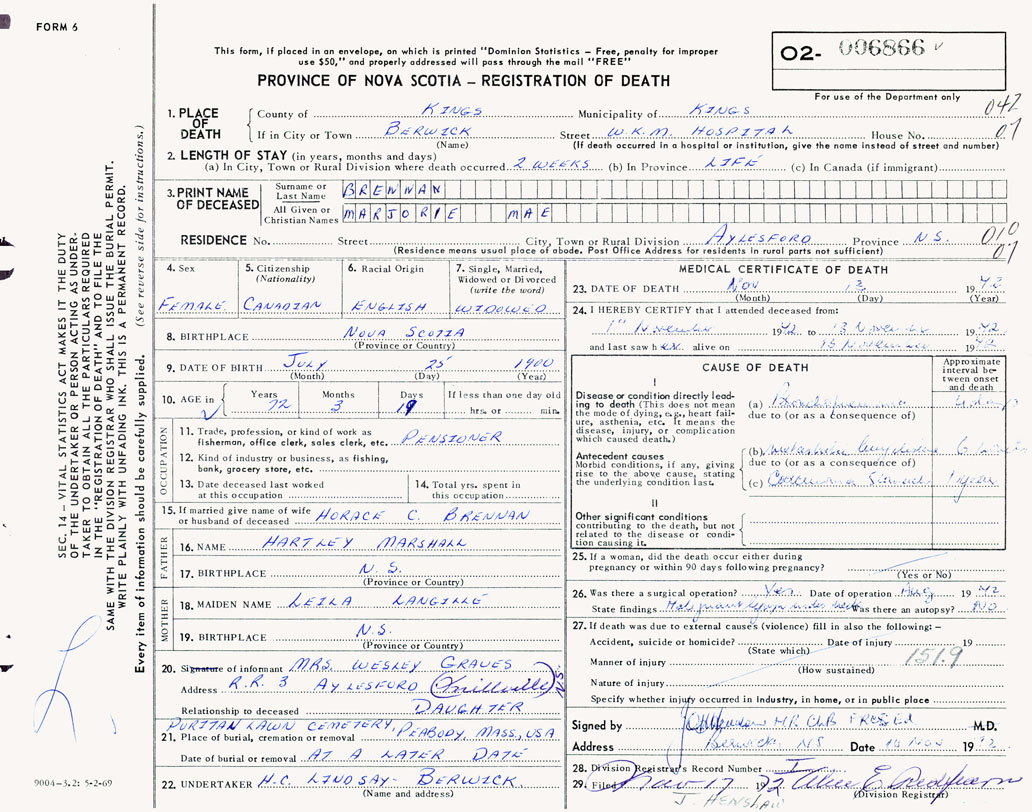 FORM 6
This form, if placed in an envelope, on which is printed "Dominion Statistics – Free, penalty for improper
use $50," and properly addressed will pass through the mail "FREE"
PROVINCE OF NOVA SCOTIA – REGISTRATION OF DEATH
O2- 006866
For use of the Department only
042
07
1. PLACE OF DEATH
County of KINGS Municipality of KINGS
If in City or Town BERWICK Street W.K.M. HOSPITAL House No.
(Name) (If death occurred in a hospital or institution, give the name instead of street and number)
2. LENGTH OF STAY (in years, months and days)
(a) In City, Town or Rural Division where death occurred 2 WEEKS (b) In Province LIFE (c) In Canada (if immigrant)
3. PRINT NAME OF DECEASED
Surname or Last Name BRENNAN
All Given or Christian Names MARJORIE MAE
RESIDENCE No. Street City, Town or Rural Division AYLESFORD Province N.S.
(Residence means usual place of abode. Post Office Address for residents in rural parts not sufficient)
010
07
4. Sex 5. Citizenship (Nationality) 6. Racial Origin 7. Single, Married, Widowed or Divorced (write the word)
FEMALE CANADIAN ENGLISH WIDOWED
8. BIRTHPLACE NOVA SCOTIA
(Province or Country)
9. DATE OF BIRTH JULY 25 1900
(Month) (Day) (Year)
10. AGE in Years Months Days If less than one day old
72 3 19 hrs. or min.
OCCUPATION
11. Trade, profession, or kind of work as fisherman, office clerk, sales clerk, etc. PENSIONER
12. Kind of industry or business, as fishing, bank, grocery store, etc.
13. Date deceased last worked at this occupation
14. Total yrs. spent in this occupation
15. If married give name of wife or husband of deceased HORACE C. BRENNAN
FATHER
16. NAME HARTLEY MARSHALL
17. BIRTHPLACE N.S.
(Province or Country)
MOTHER
18. MAIDEN NAME LEILA LANGILLE
19. BIRTHPLACE N.S.
(Province or Country)
20. Signature of informant MRS. WESLEY GRAVES
Address R.R. 3 AYLESFORD (Millville) N.S.
Relationship to deceased DAUGHTER
PURITAN LAWN CEMETERY, PEABODY, MASS, USA
21. Place of burial, cremation or removal
Date of burial or removal AT A LATER DATE
22. UNDERTAKER H.C. LINDSAY - BERWICK.
(Name and address)
MEDICAL CERTIFICATE OF DEATH
23. DATE OF DEATH Nov 13 1972
(Month) (Day) (Year)
24. I HEREBY CERTIFY that I attended deceased from:
1st November 1972 to 13 November 1972
and last saw her alive on 13 November 1972
CAUSE OF DEATH
Approximate interval between onset and death
I
Disease or condition directly leading to death (This does not mean the mode of dying, e.g., heart failure, asthenia, etc. It means the disease, injury, or complication which caused death.)
(a) Bronchopneumonia 4 days
due to (or as a consequence of)
Antecedent causes
Morbid conditions, if any, giving rise to the above cause, stating the underlying condition last.
(b) 6
due to (or as a consequence of)
(c) Carcinoma Stomach 1 year
II
Other significant conditions contributing to the death, but not related to the disease or condition causing it.
25. If a woman, did the death occur either during pregnancy or within 90 days following pregnancy?
(Yes or No)
26. Was there a surgical operation? Yes Date of operation Aug 1972
State findings Malignant lymph nodes neck Was there an autopsy? NO
27. If death was due to external causes (violence) fill in also the following:–
Accident, suicide or homicide? Date of injury 19
(State which)
151.9
Manner of injury
(How sustained)
Nature of injury
Specify whether injury occurred in industry, in home, or in public place
Signed by M.D.
Address Berwick NS Date 14 Nov 1972
28. Division Registrar's Record Number
29. Filed Nov 17 1972
(Division Registrar)
J. HENSHAW
SEC. 14 – VITAL STATISTICS ACT MAKES IT THE DUTY
OF THE UNDERTAKER OR PERSON ACTING AS UNDER-
TAKER TO OBTAIN ALL THE PARTICULARS REQUIRED
IN THE "REGISTRATION OF DEATH" AND TO FILE THE
SAME WITH THE DIVISION REGISTRAR WHO SHALL ISSUE THE BURIAL PERMIT.
WRITE PLAINLY WITH UNFADING INK. THIS IS A PERMANENT RECORD.
Every item of information should be carefully supplied. (See reverse side for instructions.)
9004–3.2: 5-2-69